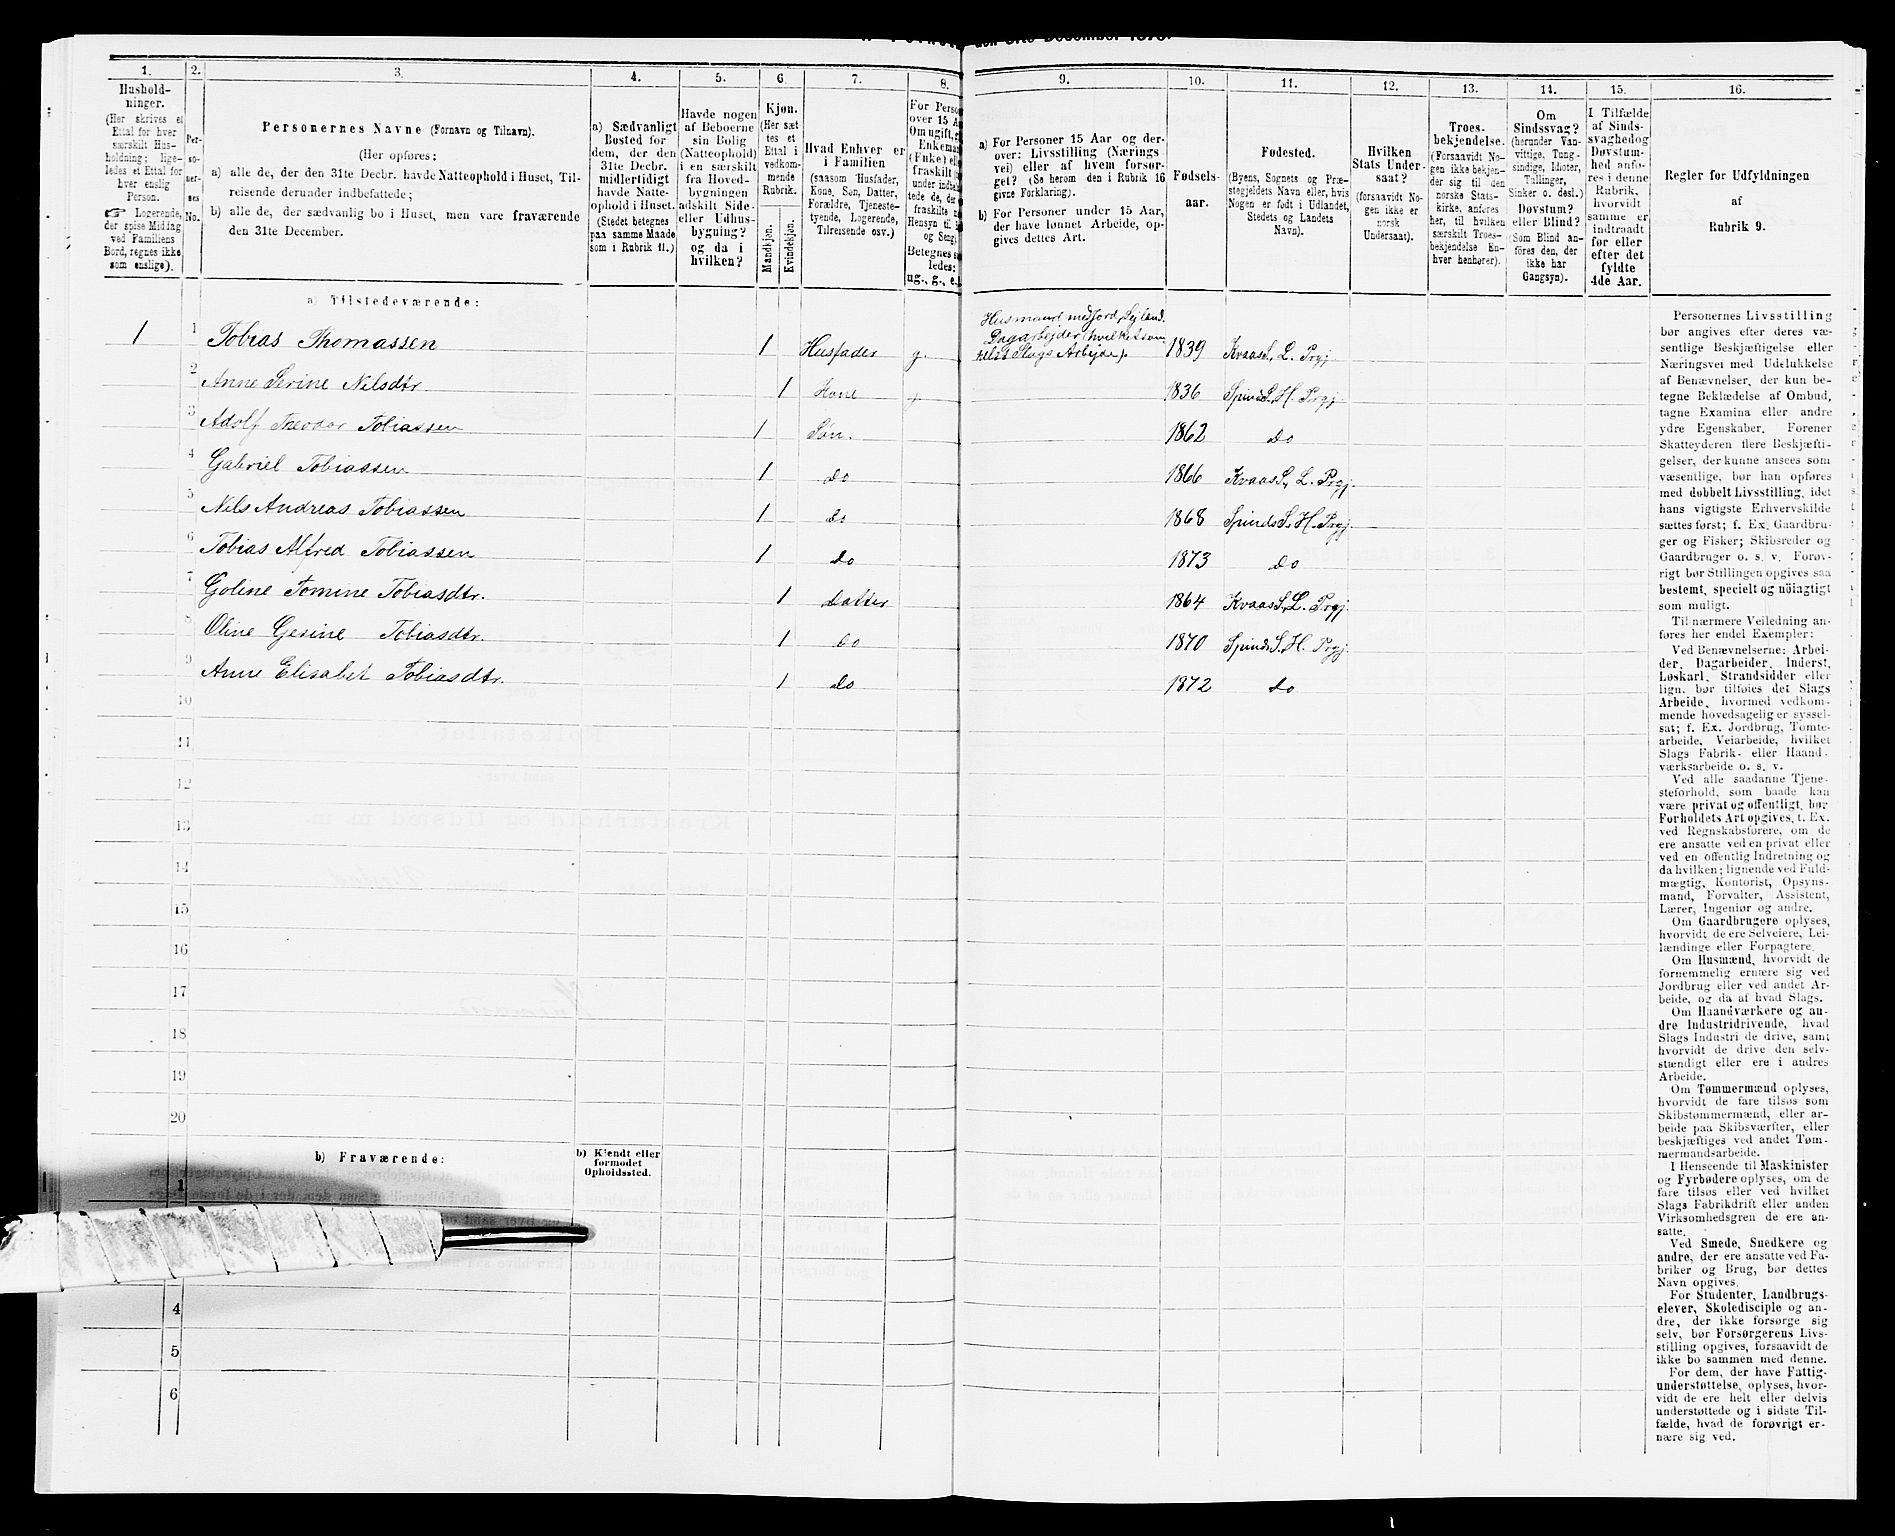 1.
2.
3.
4.
5.
6.
7.
8.
9.
10.
11.
12.
13.
14.
15.
16.
Hushold-
ninger.
(Her skrives et
Ettal for hver
særskilt Hus-
holdning; lige-
ledes et Ettal for
hver enslig
Person.
Logerende,
der spise Middag
ved Familiens
Bord, regnes ikke
som enslige).
Per-
so-
ner-
nes
No.
Personernes Navne (Fornavn og Tilnavn).
(Her opføres:
a) alle de, der den 31te Decbr. havde Natteophold i Huset, Til-
reisende derunder indbefattede;
b) alle de, der sædvanlig bo i Huset, men vare fraværende
den 31te December.
a) Sædvanligt
Bosted for
dem, der den
31te Decbr.
midlertidigt
havde Natte-
ophold i Huset.
(Stedet betegnes
paa samme Maade
som i Rubrik 11.)
Havde nogen
af Beboerne
sin Bolig
(Natteophold)
i en særskilt
fra Hoved-
bygningen
adskilt Side-
eller Udhus-
bygning?
og da i
hvilken?
Kjøn.
(Her sæt-
tes et
Ettal i
vedkom-
mende
Rubrik.
Mandkjøn.
Kvindekjøn.
Hvad Enhver er
i Familien
(saasom Husfader,
Kone, Søn, Datter,
Forældre, Tjeneste-
tyende, Logerende,
Tilreisende osv.)
For Perso
over 15 A
Om ugift, g
Enkema
(Enke) el
fraskilt
under indb
tede de, de
fraskilte
Hensyn til
og Seng
Betegnes s
ledes:
ug., g., e.
a) For Personer 15 Aar og der-
over: Livsstilling (Nærings
vei) eller af hvem forsør-
get? (Se herom den i Rubrik 16
givne Forklaring).
b) For Personer under 15 Aar,
der have lønnet Arbeide, op-
gives dettes Art.
Fødsels-
aar.
Fødested.
(Byens, Sognets og Præ-
stegjeldets Navn eller, hvis
Nogen er født i Udlandet,
Stedets og Landets
Navn).
Hvilken
Stats Under-
saat?
(forsaavidt No-
gen ikke er
norsk
Undersaat).
Troes-
bekjendelse.
(Forsaavidt No-
gen ikke bekjen-
der sig til den
norske Stats-
kirke, anføres
her, til hvilken
særskilt Troes-
bekjendelse En-
hver henhører).
Om
Sindssvag?
(herunder Van-
vittige, Tung-
sindige, Idioter,
Tullinger,
Sinker o. desl.)
Døvstum?
eller Blind?
(Som Blind an-
føres den, der
ikke har
Gangsyn).
I Tilfælde
af Sinds-
svaghed og
Døvstum-
hed anfø-
res i denne
Rubrik,
hvorvidt
samme er
indtraadt
før eller
efter det
fyldte
4de Aar.
Regler for Udfyldningen
af
Rubrik 9.
a) Tilstedeværende:
1 1 Tobias Thomassen 1 Husfader g. Husmand med Jord, Sejland.
Dagarbejder (hvilketsom
helst Slags Arbejde). 1839 Kvaas S., L. Prgj
2 Anne Serine Nilsdtr 1 Kone g 1836 Spinds S. H. Prgj.
3 Adolf Theodor Tobiassen 1 Søn. 1862 do
4 Gabriel Tobiassen 1 do 1866 Kvaas S., L. Prgj.
5 Nils Andreas Tobiassen 1 do 1868 Spinds S. H. Prgj.
6 Tobias Alfred Tobiassen 1 do 1873 do
7 Goline Tomine Tobiasdtr. 1 Datter 1864 Kvaas S., L. Prgj.
8 Oline Gesine Tobiasdtr. 1 do 1870 Spinds S. H. Prgj.
9 Anne Elisabet Tobiasdtr. 1 do 1872 do
10
11
12
13
14
15
16
17
18
19
20
b) Fraværende:
b) Kjendt eller
formodet
Opholdssted.
1
4
5
6
Personernes Livsstilling
bør angives efter deres væ-
sentlige Beskjæftigelse eller
Næringsvei med Udelukkelse
af Benævnelser, der kun be-
tegne Beklædelse af Ombud,
tagne Examina eller andre
ydre Egenskaber. Forener
Skatteyderen flere Beskjæfti-
gelser, der kunne ansees som
væsentlige, bør han opføres
med dobbelt Livsstilling, idet
hans vigtigste Erhvervskilde
sættes først; f. Ex. Gaardbru-
ger og Fisker; Skibsreder og
Gaardbruger o. s. v. Forøv-
rigt bør Stillingen opgives saa
bestemt, specielt og nöiagtigt
som muligt.
Til nærmere Veiledning an-
føres her endel Exempler:
Ved Benævnelserne: Arbei-
der, Dagarbeider, Inderst,
Løskarl, Strandsidder eller
lign. bør tilføies det Slags
Arbeide, hvormed vedkom-
mende hovedsagelig er syssel-
sat; f. Ex. Jordbrug, Tomte-
arbeide, Veiarbeide, hvilket
Slags Fabrik- eller Haand-
værksarbeide o. s. v.
Ved alle saadanne Tjene-
steforhold, som baade kan
være privat og offentligt, bør
Forholdets Art opgives, t. Ex.
ved Regnskabsførere, om de
ere ansatte ved en privat eller
ved en offentlig Indretning og
da hvilken; lignende ved Fuld-
mægtig, Kontorist, Opsyns-
mand, Forvalter, Assistent,
Lærer, Ingeniør og andre.
Om Gaardbrugere oplyses,
hvorvidt de ere Selveiere, Lei-
lændinge eller Forpagtere.
Om Husmænd, hvorvidt de
fornemmelig ernære sig ved
Jordbrug eller ved andet Ar-
beide, og da af hvad Slags.
Om Haandværkere og an-
dre Industridrivende, hvad
Slags Industri de drive, samt
hvorvidt de drive den selv-
stændigt eller ere i andres
Arbeide.
Om Tømmermænd oplyses,
hvorvidt de fare tilsøs som
Skibstømmermænd, eller ar-
beide paa Skibsværfter, eller
beskjæftiges ved andet Tøm-
mermandsarbeide.
I Henseende til Maskinister
og Fyrbødere oplyses, om de
fare tilsøs eller ved hvilket
Slags Fabrikdrift eller anden
Virksomhedsgren de ere an-
satte.
Ved Smede, Snedkere og
andre, der ere ansatte ved Fa-
briker og Brug, bør dettes
Navn opgives.
For Studenter, Landbrugs-
elever, Skoledisciple og an-
dre, der ikke forsørge sig
selv, bør Forsørgerens Livs-
stilling opgives, forsaavidt de
ikke bo sammen med denne.
For dem, der have Fattig-
understøttelse, oplyses, hvor-
vidt de ere helt eller delvis
understøttede og i sidste Til-
fælde, hvad de forøvrigt er-
nære sig ved.